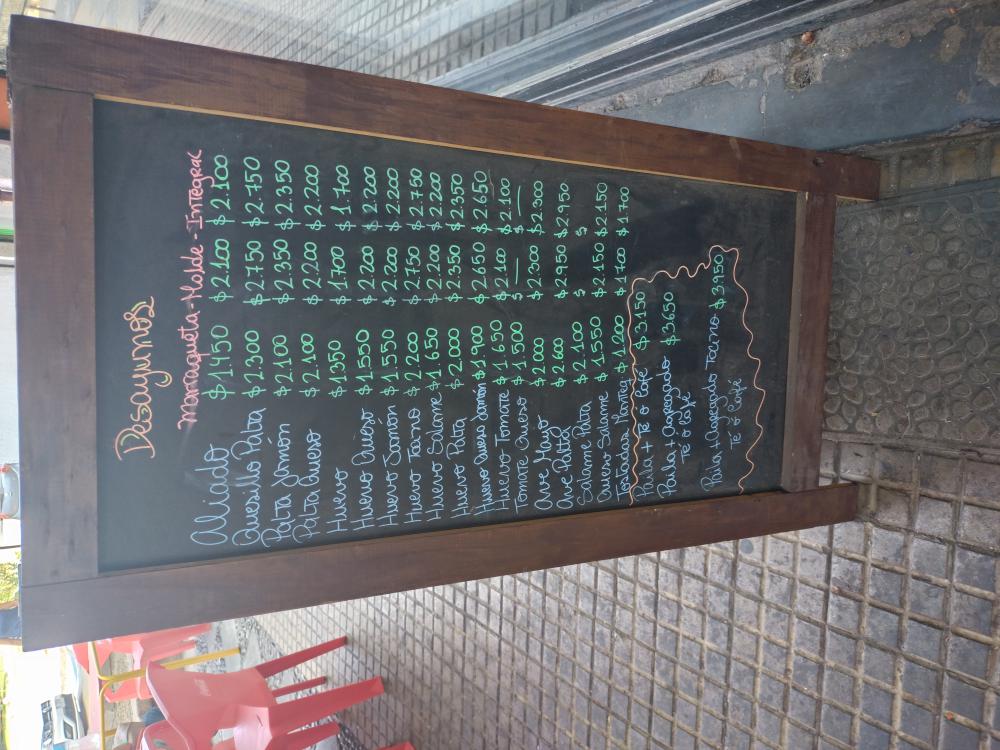 Desayunos
Marraqueta - Molde - Integral
Aliado $1450 $2.100 $2.100
Quesillo Palta $2.300 $2.750 $2.750
Palta Jamón $2.100 $2.350 $2.350
Palta Queso $2.100 $2.200 $2.200
Huevo $1350 $1700 $1.700
Huevo Queso $1.550 $2.200 $2.200
Huevo Jamon $1.550 $2.200 $2.200
Huevo Tocino $2.200 $2.750 $2.750
Huevo Salame $1.650 $2.200 $2.200
Huevo Palta $2.000 $2.350 $2.350
Huevo Queso Jamón $1.900 $2.650 $2.650
Huevo Tomate $1.650 $2.100 $2.100
Tomate Queso $1.500 $ — $ —
Ave Mayo $2000 $2.300 $2.300
Ave Palta $2.600 $2.950 $2.950
Salame Palta $2.100 $ $
Queso Salame $1.550 $2.150 $2.150
Tostadas Manteq $1.200 $1700 $1.700
Paila + Té o Café $3.150
Paila + Agregado $3650
Té o Café
Paila + Agregado Tocino $3.950
Té ó Café